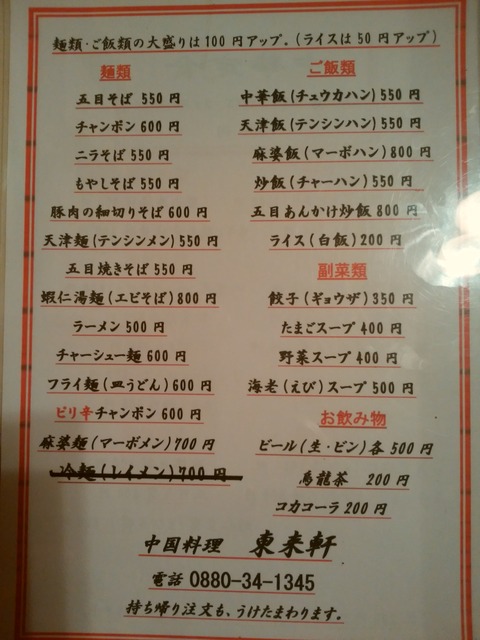 麺類・ご飯類の大盛りは100円アップ。(ライスは50円アップ)
麺類
五目そば 550円
チャンポン 600円
ニラそば 550円
もやしそば 550円
豚肉の細切りそば 600円
天津麺(テンシンメン) 550円
五目焼きそば 550円
蝦仁湯麺(エビそば) 800円
ラーメン 500円
チャーシュー麺 600円
フライ麺(皿うどん) 600円
ピリ辛チャンポン 600円
麻婆麺(マーボメン) 700円
冷麺(レイメン) 700円
ご飯類
中華飯(チュウカハン) 550円
天津飯(テンシンハン) 550円
麻婆飯(マーボハン) 800円
炒飯(チャーハン) 550円
五目あんかけ炒飯 800円
ライス(白飯) 200円
副菜類
餃子(ギョウザ) 350円
たまごスープ 400円
野菜スープ 400円
海老(えび)スープ 500円
お飲み物
ビール(生・ビン)各500円
烏龍茶 200円
コカコーラ 200円
中国料理 東来軒
電話 0880-34-1345
持ち帰り注文も、うけたまわります。